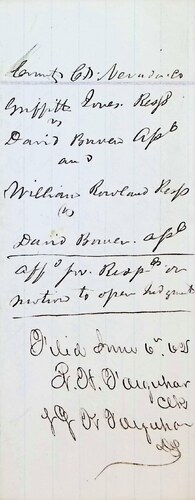 County Ct. Nevada Co
Griffith Jones. Respt
vs
David Bowen Aplt
and
William Rowland Resp
vs
David Bowen. aplt
affts for. Respts on
motion to open Judgment
Filed June 6th, 62
R. H. Farquhar
Clk
J G H Farquhar